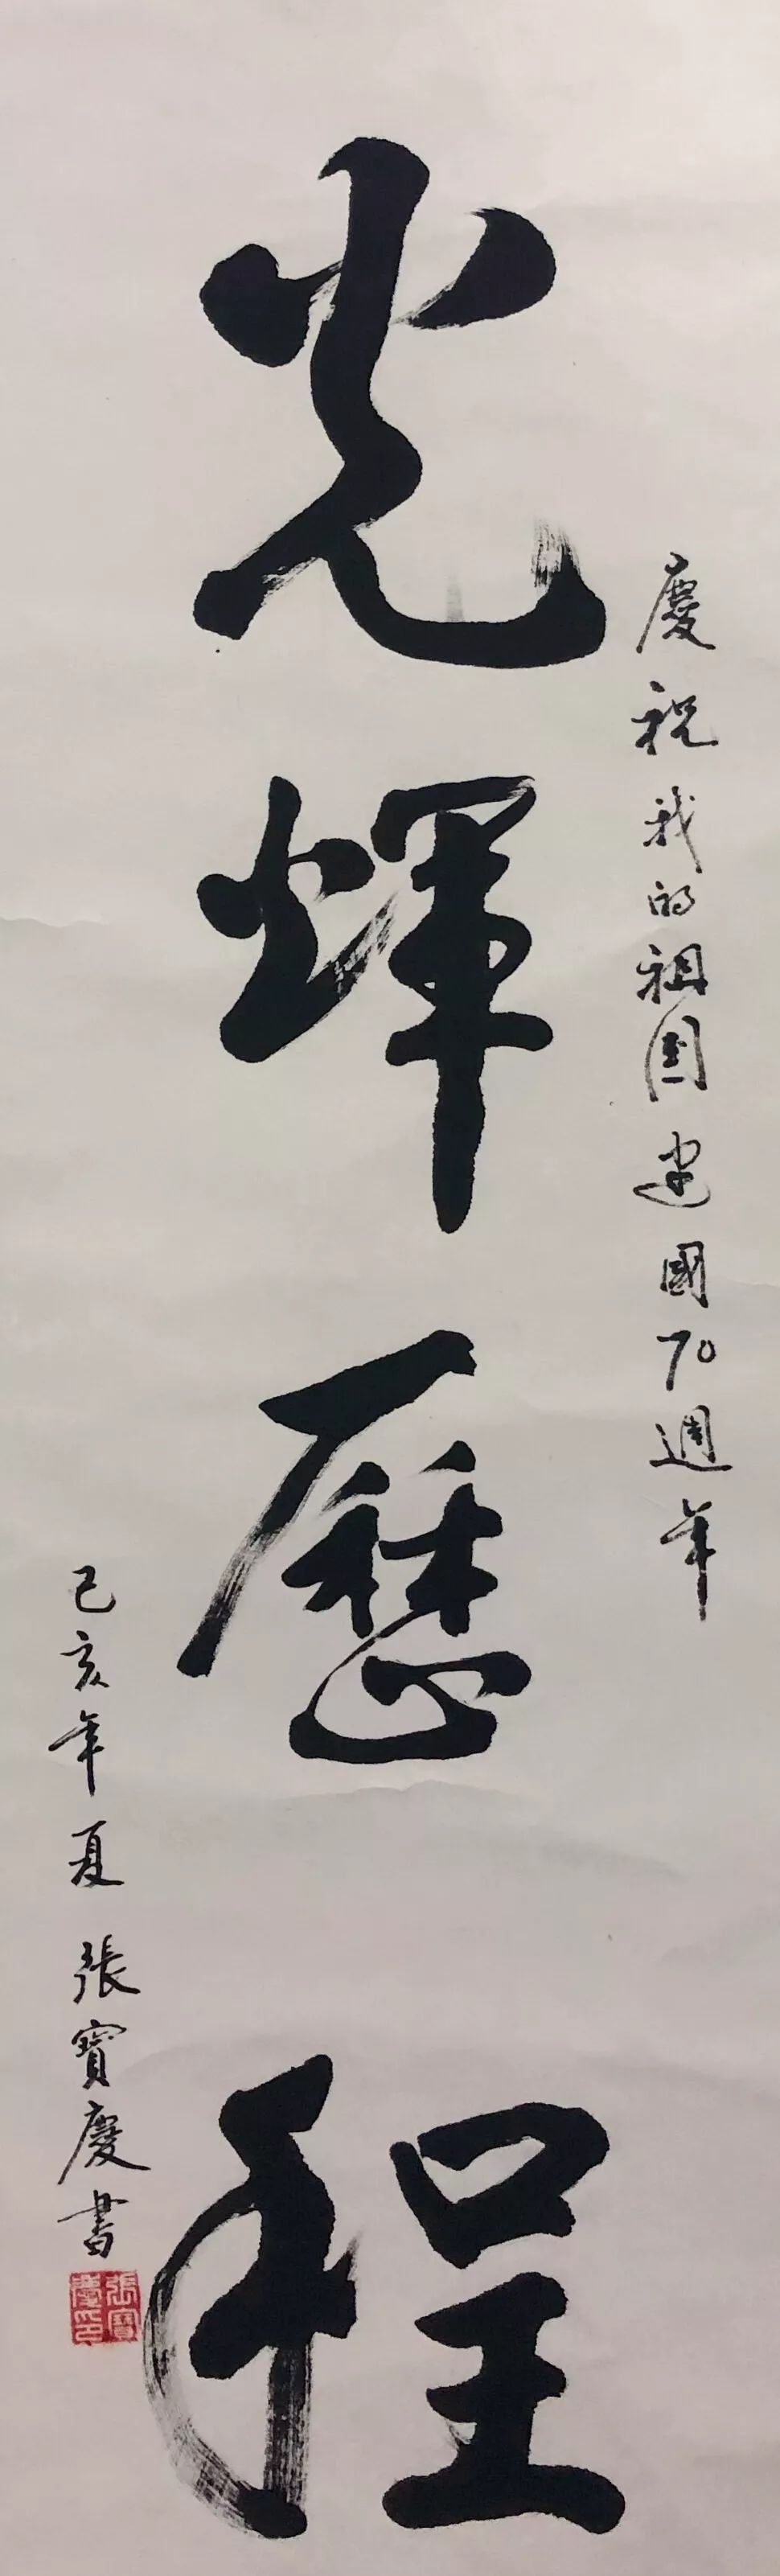 慶祝我的祖国建國70週年
光煇歷程
己亥年夏 張寶慶書
張寶慶印